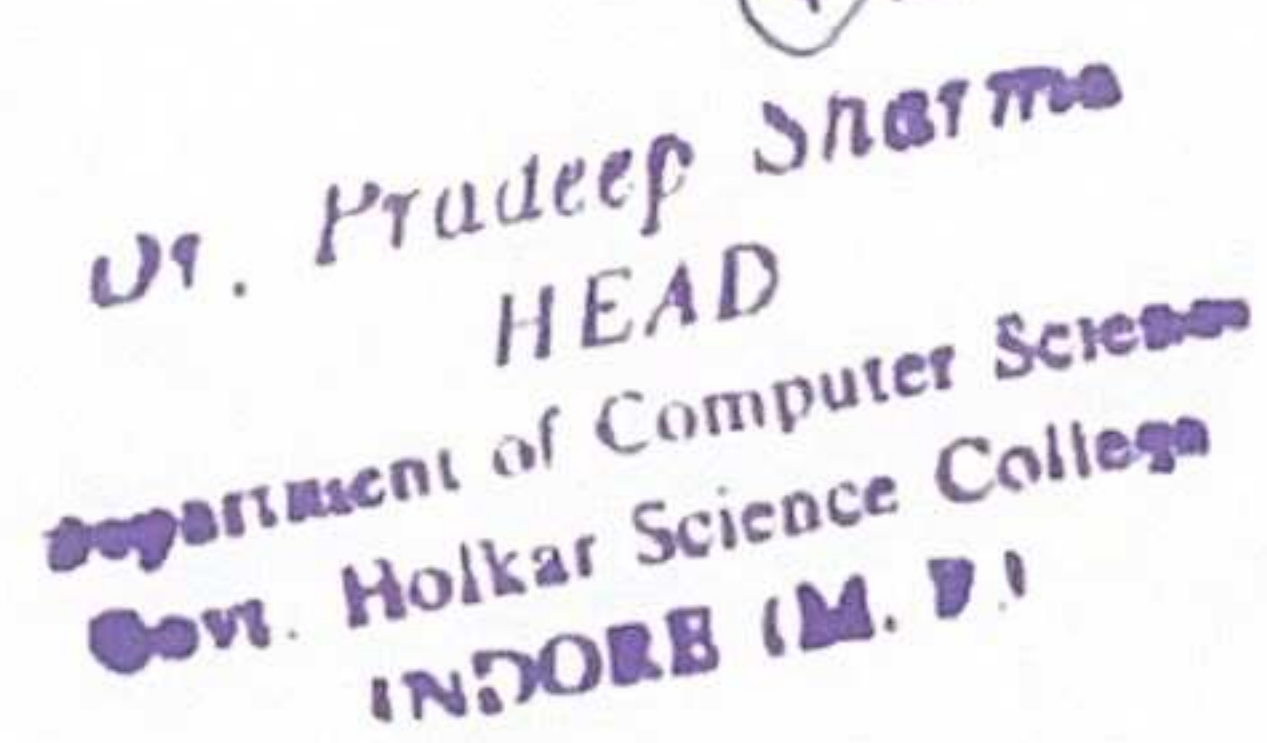 Dr. Pradeep Sharma
HEAD
Department of Computer Science
Govt. Holkar Science College
INDORE (M. P.)